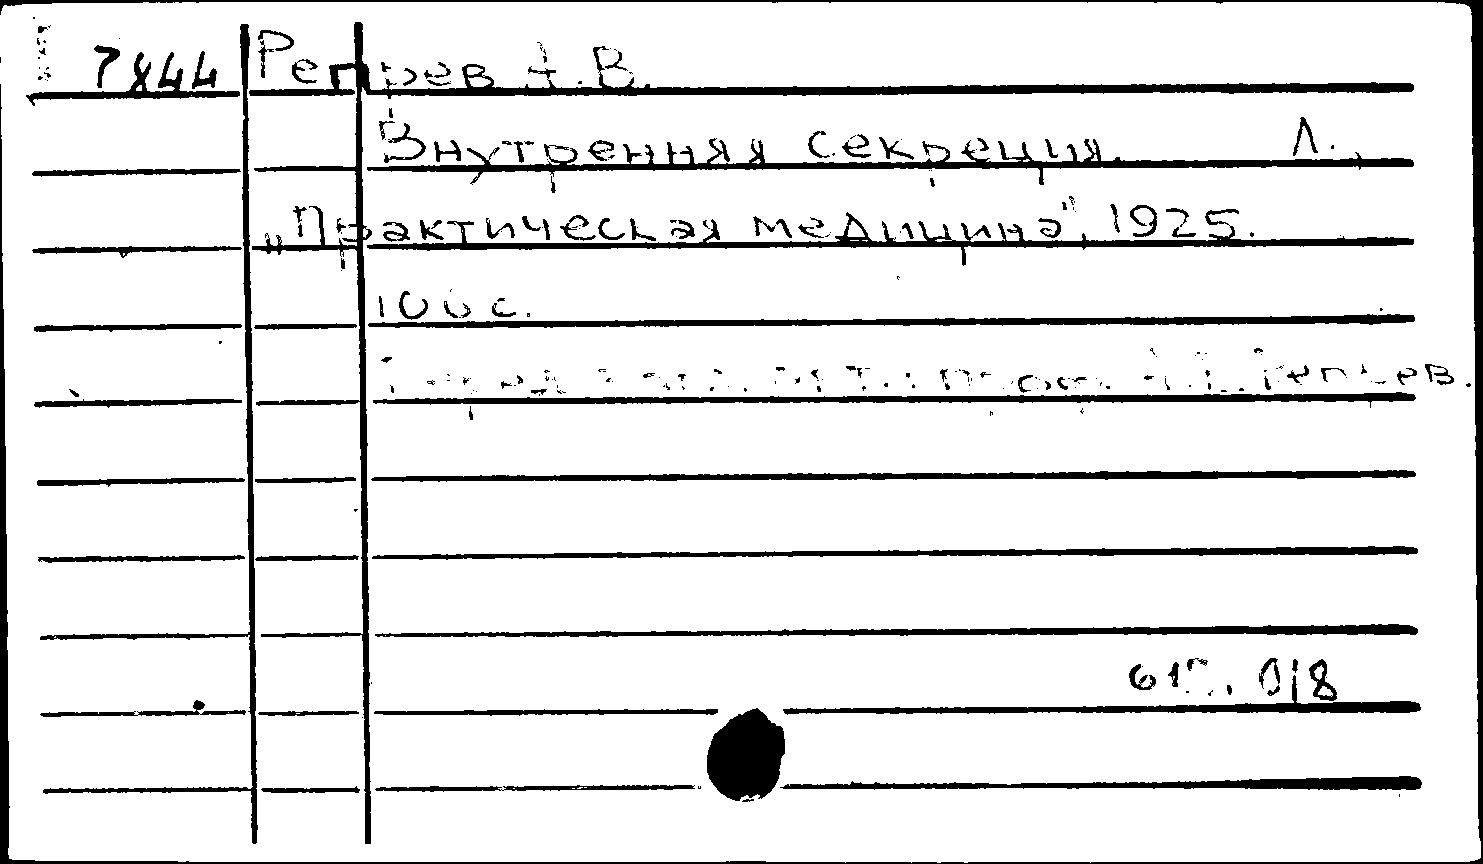 7844 Репрев А.В.
Внутренняя секреция. Л.,
„Практическая медицина", 1925.
100 с.
проф. Репрев.